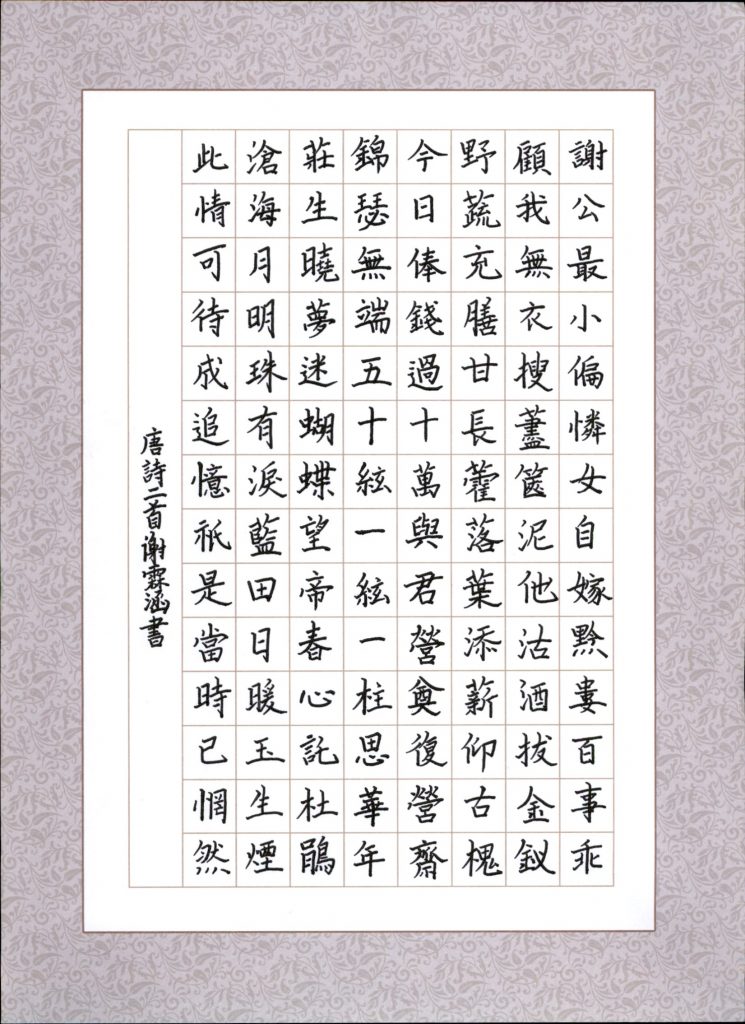 謝公最小偏憐女自嫁黔婁百事乖
顧我無衣搜藎篋泥他沽酒拔金釵
野蔬充膳甘長藿落葉添薪仰古槐
今日俸錢過十萬與君營奠復營齋
錦瑟無端五十絃一絃一柱思華年
莊生曉夢迷蝴蝶望帝春心託杜鵑
滄海月明珠有淚藍田日暖玉生煙
此情可待成追憶祇是當時已惘然
唐詩二首谢霖涵書